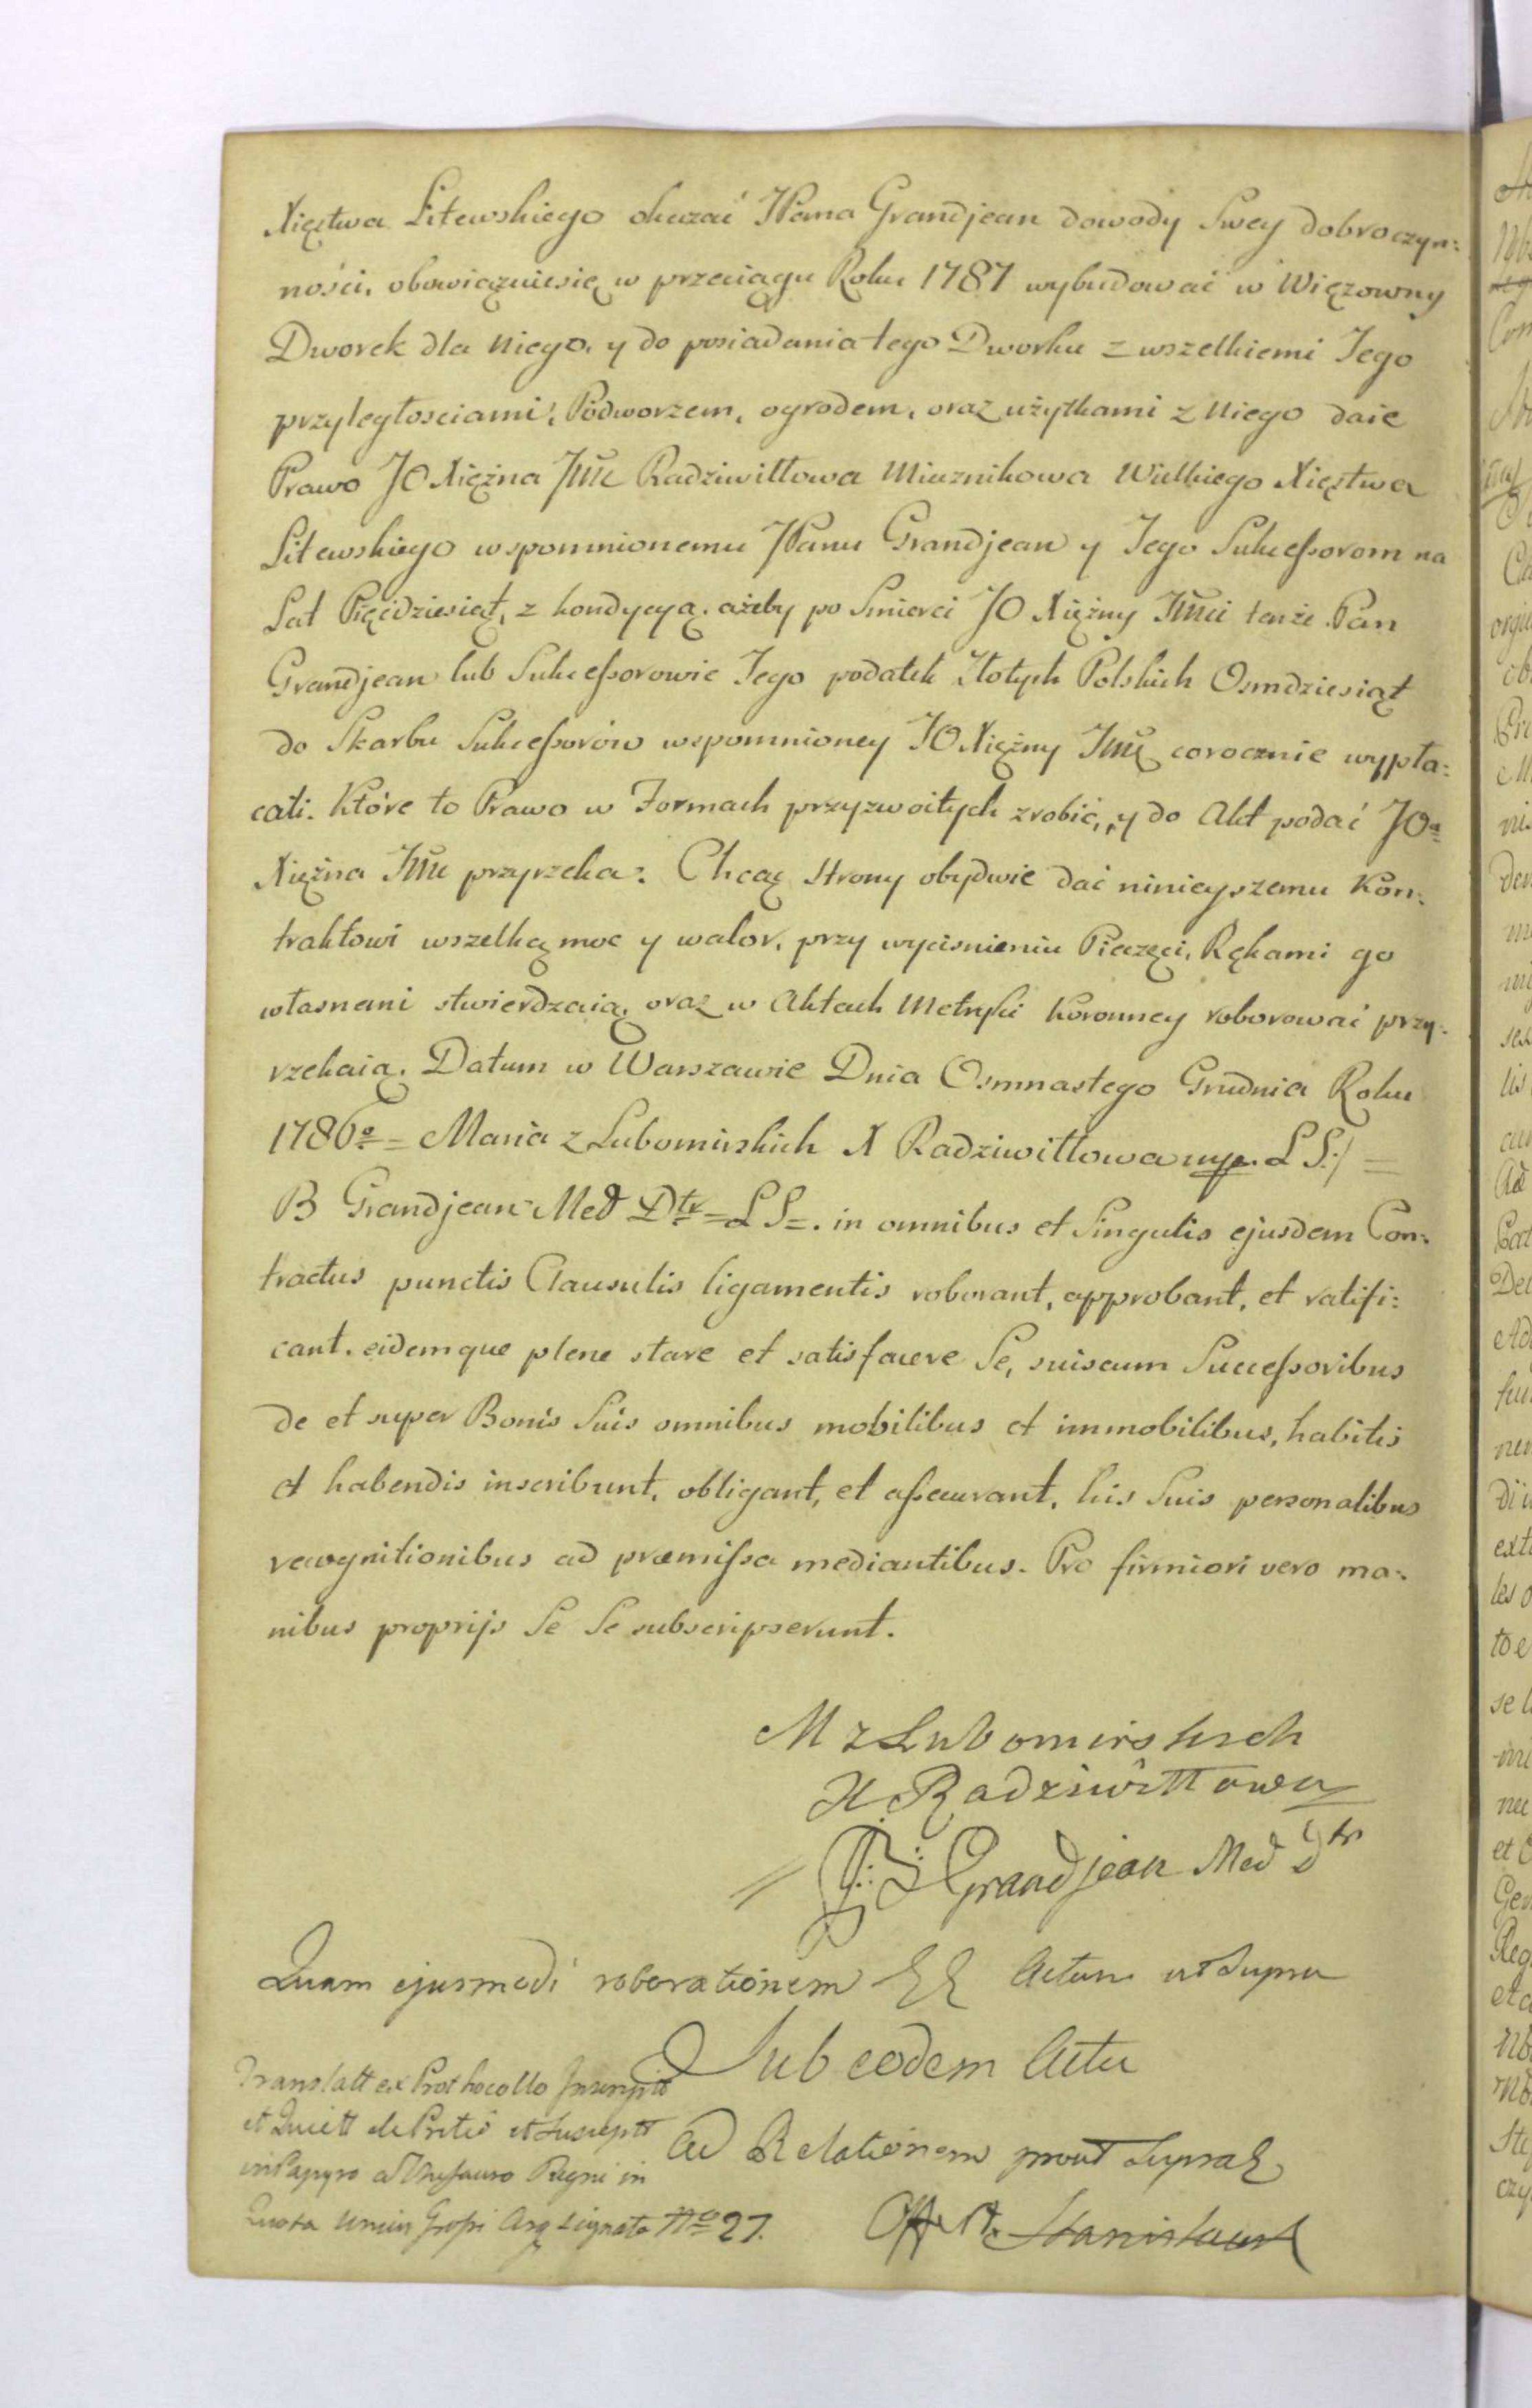 Xięstwa Litewskiego okazać JPana Grandjean dowody Swey dobroczyn:
ności, obowiązuiesię w przeciągu Roku 1787 wybudować w Więzowny
Dworek dla niego, y do posiadania tego Dworku z wszelkiemi Jego
przyległosciami, Podworzem, ogrodem, oraz użytkami z niego daie
Prawo JO Xiężna Jmc Radziwiłłowa Miecznikowa Wielkiego Xięstwa
Litewskiego wspomnionemu JPanu Grandjean y Jego Sukceßorom na
Lat Pięćdziesiąt, z kondycyą, ażeby po Smierci JO Xiężny Jmci tenże Pan
Grandjean lub Sukceßorowie Jego podatek Złotych Polskich Osmdziesiąt
do Skarbu Sukceßorów wspomnioney JO Xiężny Jmc corocznie wypła:
cali. Które to Prawo w Formach przyzwoitych zrobić, y do Akt podać JOa
Xiężna Jmc przyrzeka: Chcąc strony obydwie dać ninieyszemu Kon:
traktowi wszelką moc y walor, przy wycisnieniu Pieczęci, Rękami go
własnemi stwierdzaią, oraz w Aktach Metryki Koronney roborować przy:
rzekaią. Datum w Warszawie Dnia Osmnastego Grudnia Roku
1786o = Maria z Lubomirskich X Radziwiłłowa mp. L S:/ =
B Grandjean Med Dtr = L S =. in omnibus et Singulis ejusdem Con:
tractus punctis Clausulis ligamentis roborant, approbant, et ratifi:
cant. eidemque plene stare et satisfacere Se, suiscum Succeßoribus
de et super Bonis Suis omnibus mobilibus et immobilibus, habitis
et habendis inscribunt, obligant, et aßecurant, his Suis personalibus
recognitionibus ad præmißa mediantibus. Pro firmiori vero ma:
nibus proprijs Se Se subscripserunt.
M z Lubomirskich
X Radziwiłłowa
Grandjean Med Dtr
Quam ejusmodi roborationem Actum ut Supra
Sub eodem Actu
Translatt ex Prothocollo Inscriptt
et Quiett de Pretio et Susceptt
in Papyro a Thesauro Regni in
Quota unius Großi Arg signato No 27.
Ad Relationem prout Supra